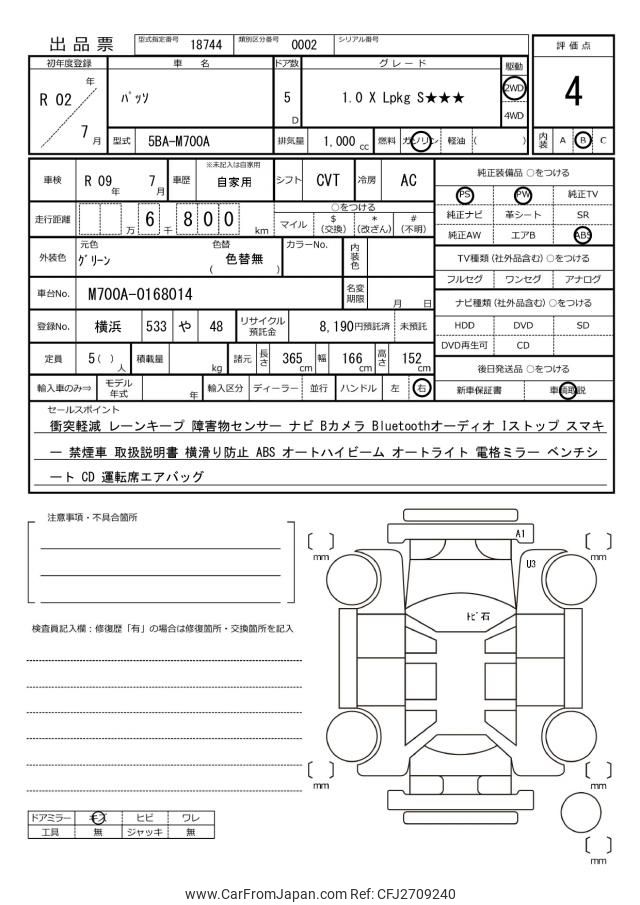 出品票 型式指定番号 18744 類別区分番号 0002 シリアル番号
評価点
4
内装 A B C
初年度登録 車名 ドア数 グレード 駆動
R 02 年 7 月 パッソ 5 D 1.0 X Lpkg S★★★ 2WD
4WD
型式 5BA-M700A 排気量 1,000 cc 燃料 ガソリン 軽油 ( )
車検 R 09 年 7 月 車歴 ※未記入は自家用 自家用 シフト CVT 冷房 AC
走行距離 万 6 千 8 0 0 km
○をつける
マイル $ (交換) * (改ざん) # (不明)
外装色 元色 グリーン 色替 ( 色替無 ) カラーNo. 内装色
車台No. M700A-0168014 名変期限 月 日
登録No. 横浜 533 や 48 リサイクル預託金 8,190円預託済 未預託
定員 5 ( ) 人 積載量 kg 諸元 長さ 365 cm 幅 166 cm 高さ 152 cm
輸入車のみ⇒ モデル年式 年 輸入区分 ディーラー 並行 ハンドル 左 右
純正装備品 ○をつける
PS PW 純正TV
純正ナビ 革シート SR
純正AW エアB ABS
TV種類 (社外品含む) ○をつける
フルセグ ワンセグ アナログ
ナビ種類 (社外品含む) ○をつける
HDD DVD SD
DVD再生可 CD
後日発送品 ○をつける
新車保証書 車輌取説
セールスポイント
衝突軽減 レーンキープ 障害物センサー ナビ Bカメラ Bluetoothオーディオ Iストップ スマキ
ー 禁煙車 取扱説明書 横滑り防止 ABS オートハイビーム オートライト 電格ミラー ベンチシ
ート CD 運転席エアバッグ
注意事項・不具合箇所
検査員記入欄：修復歴「有」の場合は修復箇所・交換箇所を記入
A1
U3
トビ石
mm
mm
mm
mm
mm
ドアミラー キズ ヒビ ワレ
工具 無 ジャッキ 無
www.CarFromJapan.com Ref: CFJ2709240